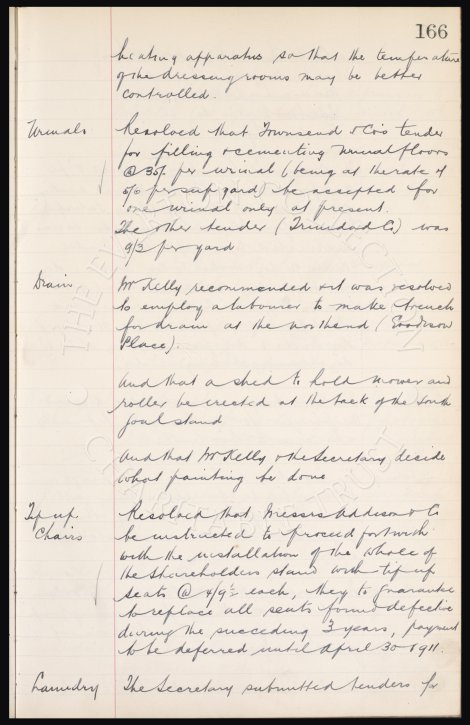 166
heating apparatus so that the temperature
of the dressing rooms may be better
controlled.
Urinals
Resolved that Townsend & Co's tender
for filling & cementing Urinal floors
@ 35/- per urinal (being at the rate of
5/6 per sup yard) be accepted for
one urinal only at present.
The other tender (Trinidad Co) was
9/3 per yard
Drain
Mr Kelly recommended & it was resolved
to employ a labourer to make trench
for drain at the north end (Goodison
Place).
And that a shed to hold mower and
roller be erected at the back of the South
Goal stand
And that Mr Kelly & the Secretary decide
what painting be done
Tip up
Chairs
Resolved that Messrs Addison & Co
be instructed to proceed forthwith
with the installation of the whole of
the shareholders stand with tip up
seats @ 4/9 each, they to guarantee
to replace all seats found defective
during the succeeding 3 years, payment
to be deferred until April 30 1911.
Laundry
The Secretary submitted tenders for
THE EVERTON COLLECTION
CHARITABLE TRUST